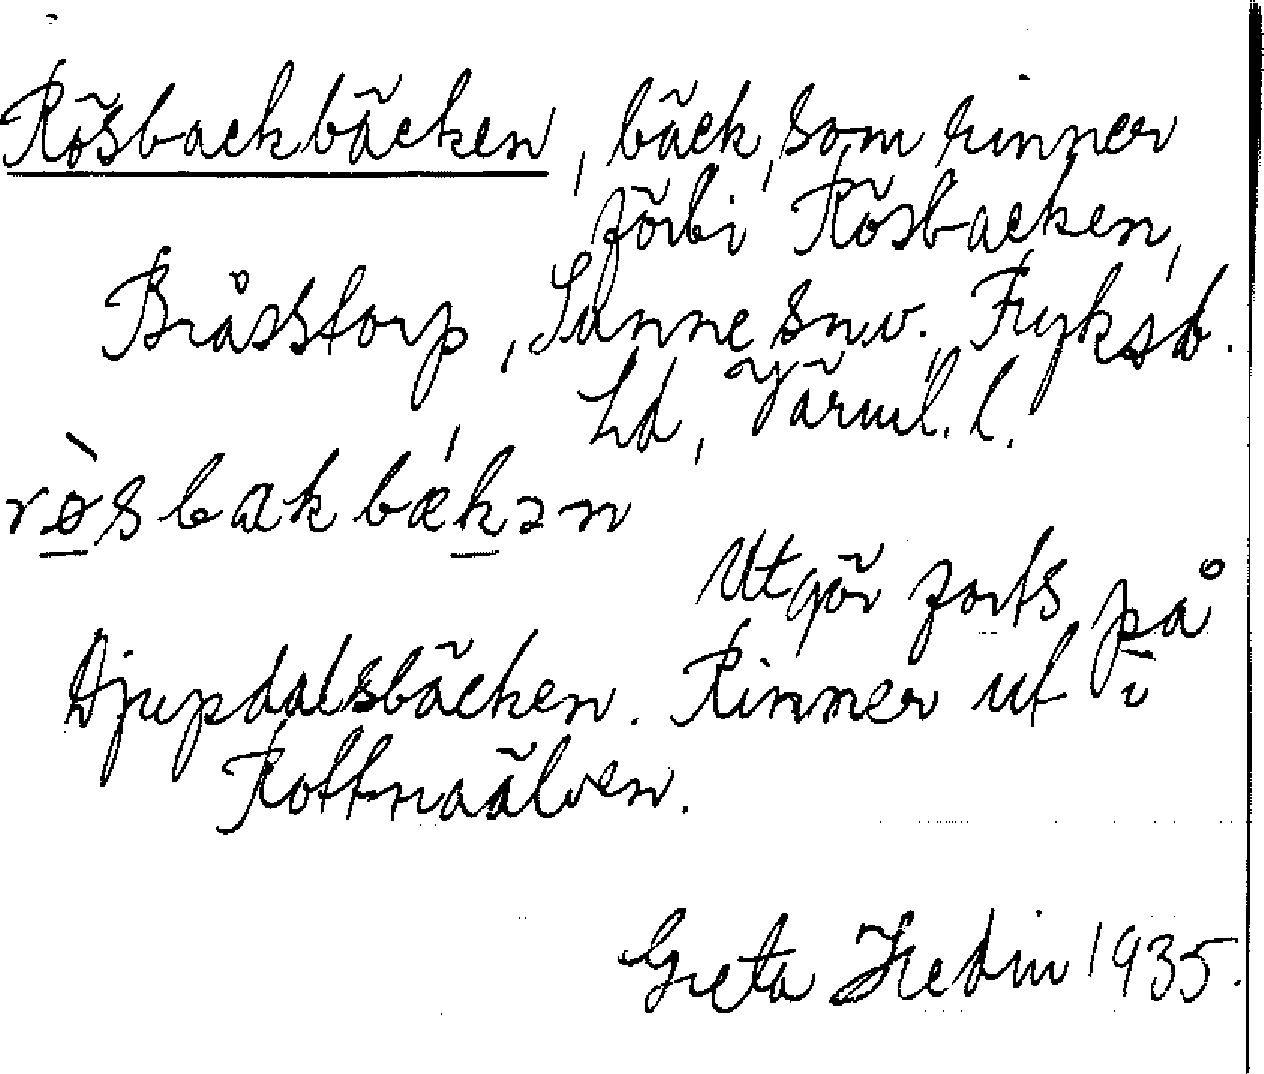 Rösbackbäcken, bäck, som rinner
förbi Rösbacken,
Bråsstorp, Sunne snv. Fryksd.
hd, Värml. l.
rø̀sbakbǽkən
Utgör forts på
Djupdalsbäcken. Rinner ut i
Rottnaälven.
Greta Hedin 1935.